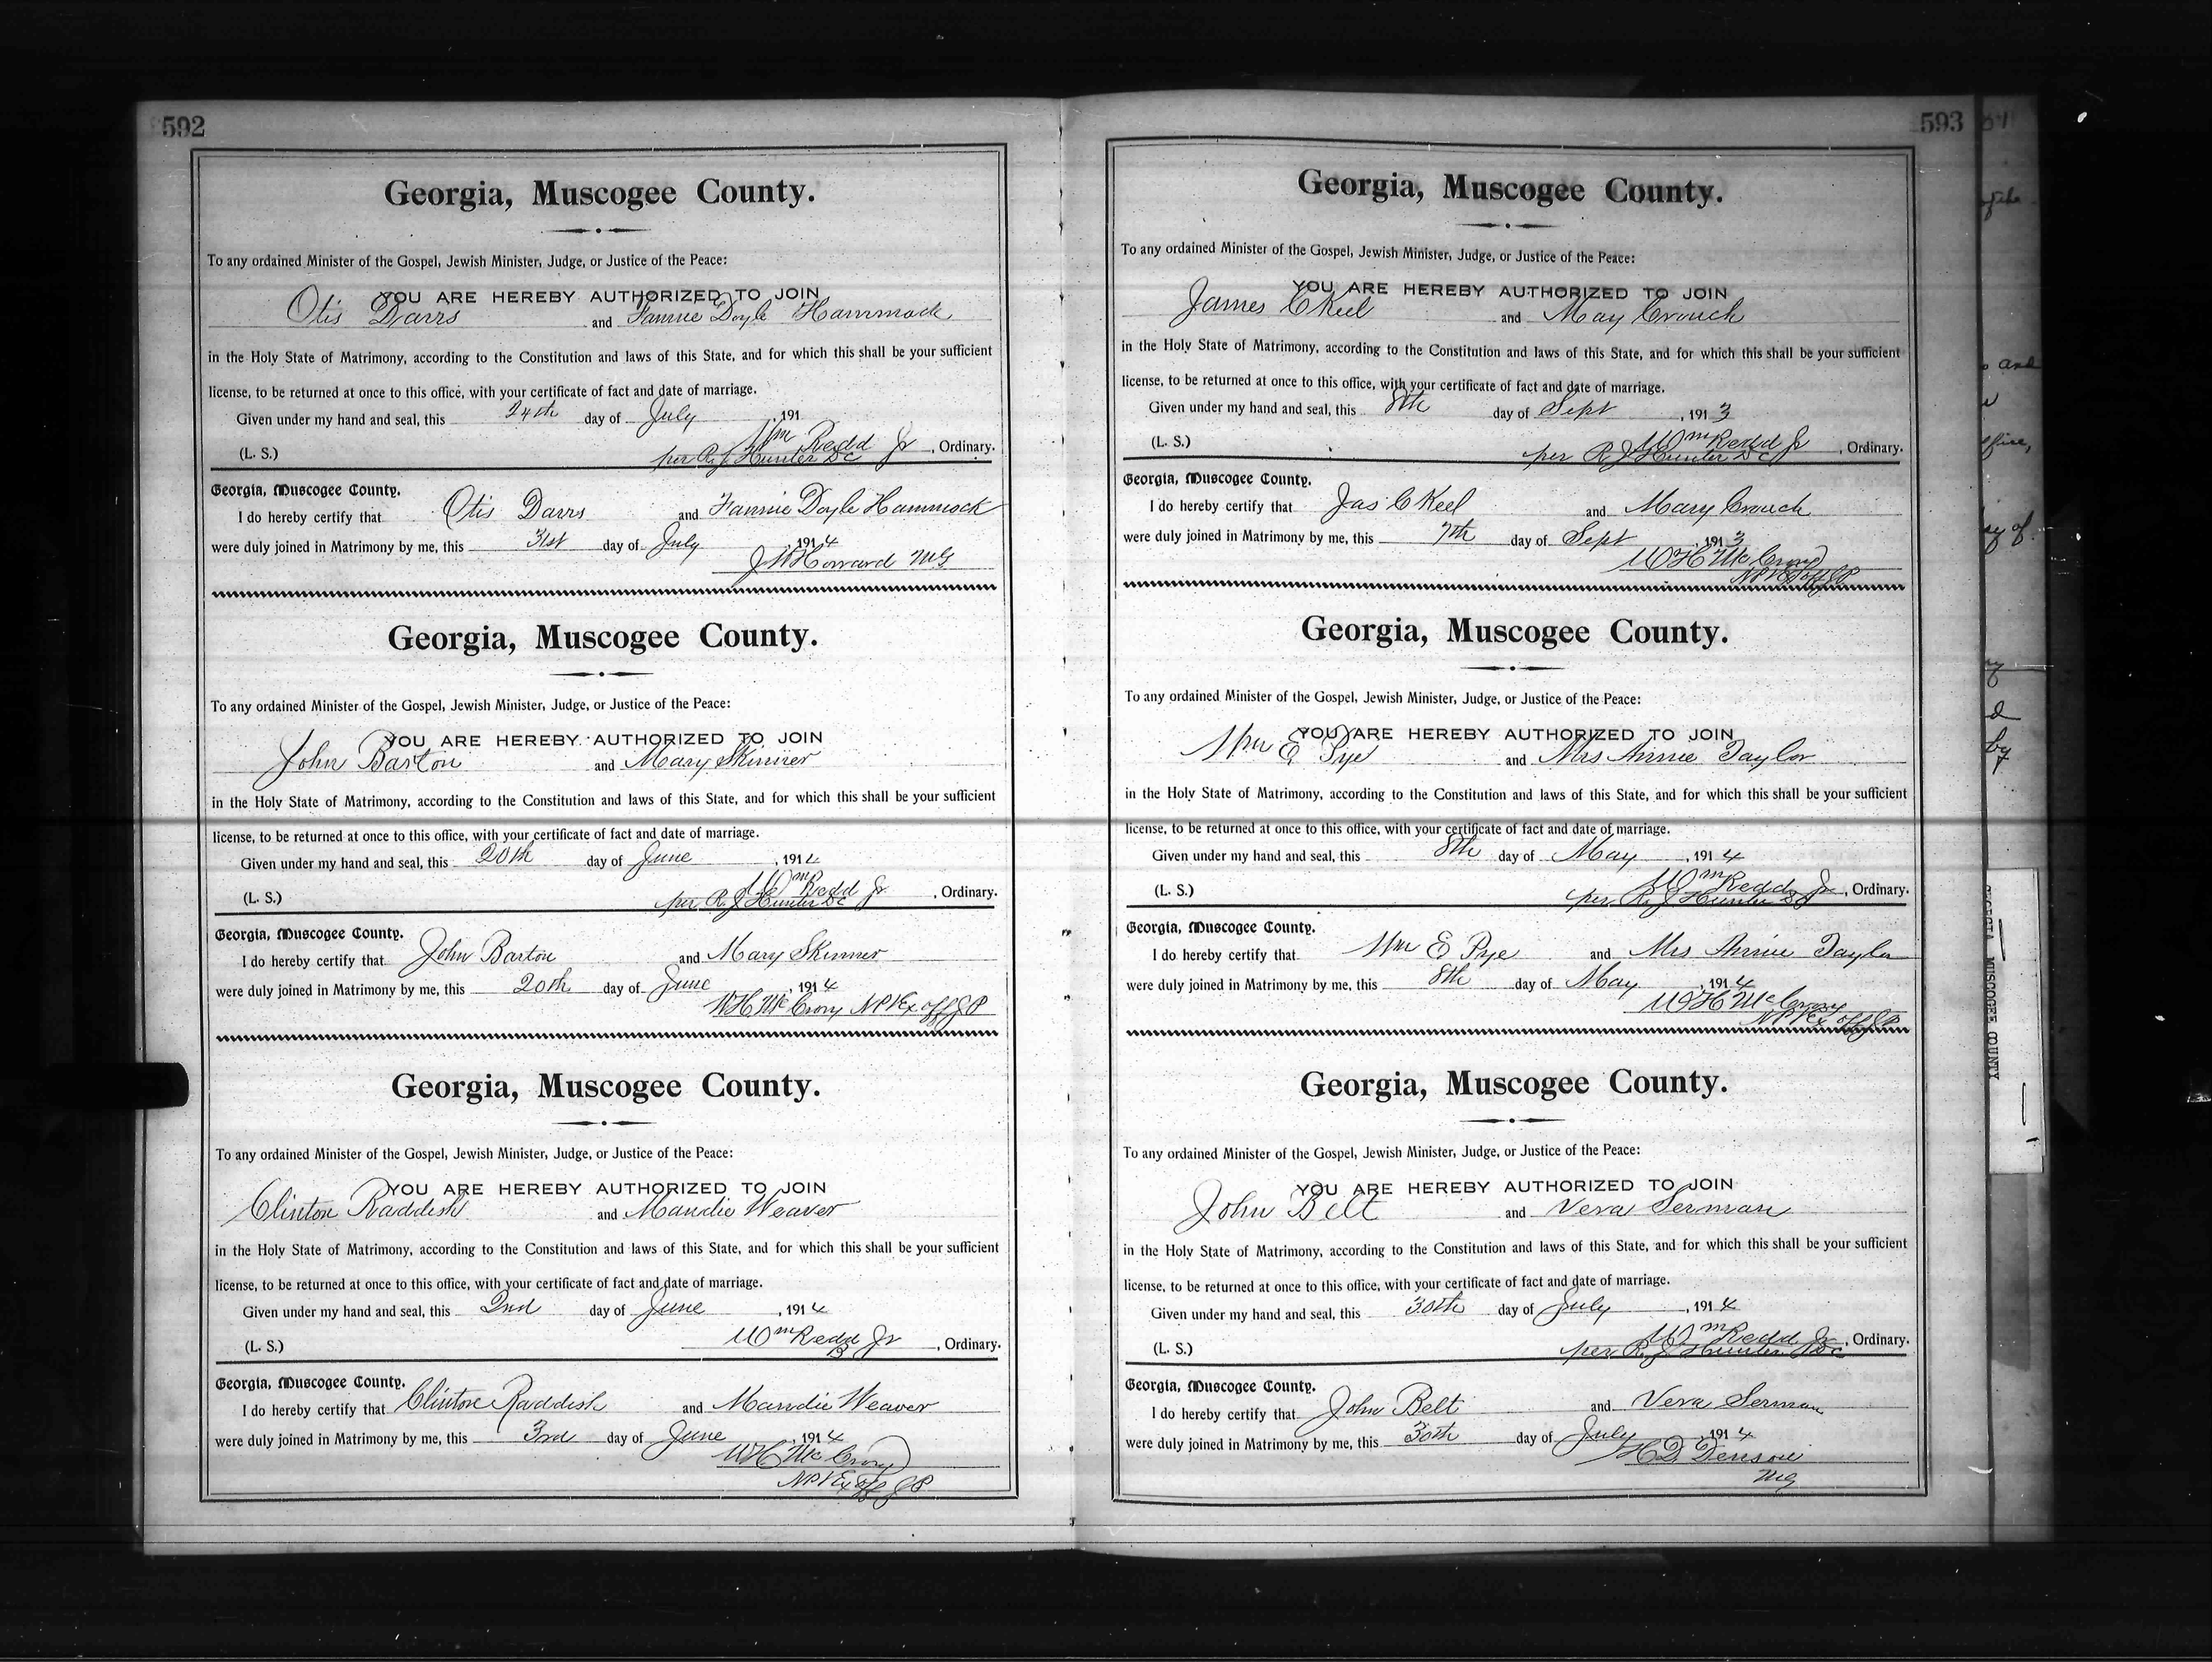 592
Georgia, Muscogee County.
To any ordained Minister of the Gospel, Jewish Minister, Judge, or Justice of the Peace:
YOU ARE HEREBY AUTHORIZED TO JOIN
Otis Darrs and Fannie Doyle Hammock
in the Holy State of Matrimony, according to the Constitution and laws of this State, and for which this shall be your sufficient
license, to be returned at once to this office, with your certificate of fact and date of marriage.
Given under my hand and seal, this 24th day of July, 191
Wm Redd Jr
(L. S.) per R. J. Hunter DC, Ordinary.
Georgia, Muscogee County.
I do hereby certify that Otis Darrs and Fannie Doyle Hammock
were duly joined in Matrimony by me, this 31st day of July, 1914
J W Howard MG
Georgia, Muscogee County.
To any ordained Minister of the Gospel, Jewish Minister, Judge, or Justice of the Peace:
YOU ARE HEREBY AUTHORIZED TO JOIN
John Barton and Mary Skinner
in the Holy State of Matrimony, according to the Constitution and laws of this State, and for which this shall be your sufficient
license, to be returned at once to this office, with your certificate of fact and date of marriage.
Given under my hand and seal, this 20th day of June, 1914
Wm Redd Jr
(L. S.) per R. J. Hunter DC, Ordinary.
Georgia, Muscogee County.
I do hereby certify that John Barton and Mary Skinner
were duly joined in Matrimony by me, this 20th day of June, 1914
W H McCrory NP & Ex off JP
Georgia, Muscogee County.
To any ordained Minister of the Gospel, Jewish Minister, Judge, or Justice of the Peace:
YOU ARE HEREBY AUTHORIZED TO JOIN
Clinton Raddish and Maudie Weaver
in the Holy State of Matrimony, according to the Constitution and laws of this State, and for which this shall be your sufficient
license, to be returned at once to this office, with your certificate of fact and date of marriage.
Given under my hand and seal, this 2nd day of June, 1914
Wm Redd Jr
(L. S.) B, Ordinary.
Georgia, Muscogee County.
I do hereby certify that Clinton Raddish and Maudie Weaver
were duly joined in Matrimony by me, this 3rd day of June, 1914
W H McCrory
NP & Ex off JP
593
Georgia, Muscogee County.
To any ordained Minister of the Gospel, Jewish Minister, Judge, or Justice of the Peace:
YOU ARE HEREBY AUTHORIZED TO JOIN
James C Keel and May Crouch
in the Holy State of Matrimony, according to the Constitution and laws of this State, and for which this shall be your sufficient
license, to be returned at once to this office, with your certificate of fact and date of marriage.
Given under my hand and seal, this 8th day of Sept, 1913
Wm Redd Jr
(L. S.) per R J Hunter DC, Ordinary.
Georgia, Muscogee County.
I do hereby certify that Jas C Keel and Mary Crouch
were duly joined in Matrimony by me, this 7th day of Sept, 1913
W H McCrory
NP & Ex off JP
Georgia, Muscogee County.
To any ordained Minister of the Gospel, Jewish Minister, Judge, or Justice of the Peace:
YOU ARE HEREBY AUTHORIZED TO JOIN
Wm E Pye and Mrs Annie Taylor
in the Holy State of Matrimony, according to the Constitution and laws of this State, and for which this shall be your sufficient
license, to be returned at once to this office, with your certificate of fact and date of marriage.
Given under my hand and seal, this 8th day of May, 1914
Wm Redd Jr
(L. S.) per R. J Hunter, Ordinary.
Georgia, Muscogee County.
I do hereby certify that Wm E Pye and Mrs Annie Taylor
were duly joined in Matrimony by me, this 8th day of May, 1914
W H McCrory
NP & Ex off JP
Georgia, Muscogee County.
To any ordained Minister of the Gospel, Jewish Minister, Judge, or Justice of the Peace:
YOU ARE HEREBY AUTHORIZED TO JOIN
John Belt and Vera Serman
in the Holy State of Matrimony, according to the Constitution and laws of this State, and for which this shall be your sufficient
license, to be returned at once to this office, with your certificate of fact and date of marriage.
Given under my hand and seal, this 30th day of July, 1914
Wm Redd Jr
(L. S.) per R. J Hunter DC, Ordinary.
Georgia, Muscogee County.
I do hereby certify that John Belt and Vera Serman
were duly joined in Matrimony by me, this 30th day of July, 1914
H D Denson
MG
of the
and
office,
day of
by
MUSCOGEE COUNTY